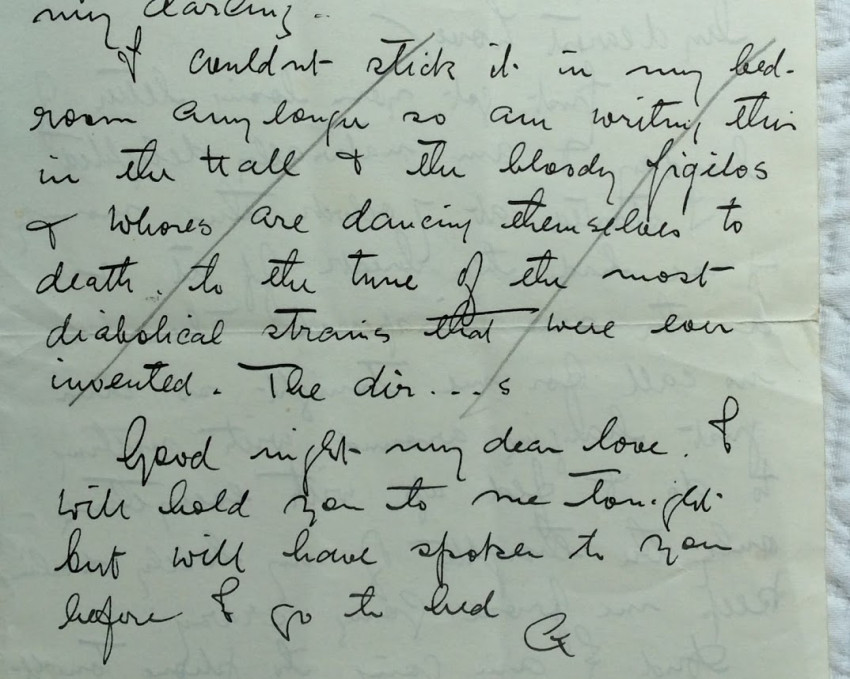 my darling.
I couldnt stick it in my bed-
room any longer so am writing this
in the Hall & the bloody gigilos
& whores are dancing themselves to
death. to the tune of the most
diabolical strains that were ever
invented. The dir....s
Good night my dear love. I
will hold you to me tonight
but will have spoken to you
before I go to bed